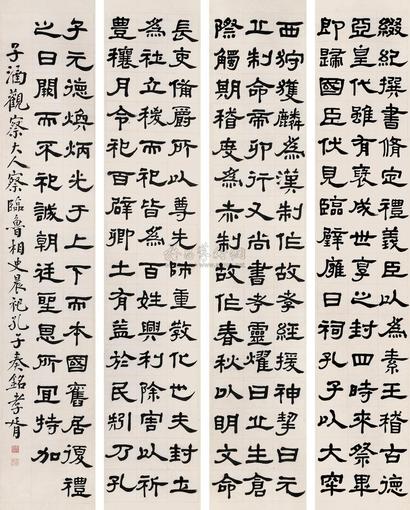 綴紀撰書脩定禮義臣以為素王稽古德
亞皇代雖有褒成世享之封四時來祭畢
即歸國臣伏見臨辟雍日祠孔子以大牢
西狩獲麟為漢制作故孝經援神挈曰元
丘制命帝卯行又尚書考靈燿曰丘生倉
際觸期稽度為赤制故作春秋以明文命
長吏備爵所以尊先師重教化也夫封土
為社立稷而祀皆為百姓興利除害以祈
豐穰月令祀百辟卿士有益於民矧乃孔
子元德煥炳光于上下而本國舊居復禮
之日闕而不祀誠朝廷聖恩所宜特加
子涵觀察大人察臨魯相史晨祀孔子奏銘孝胥